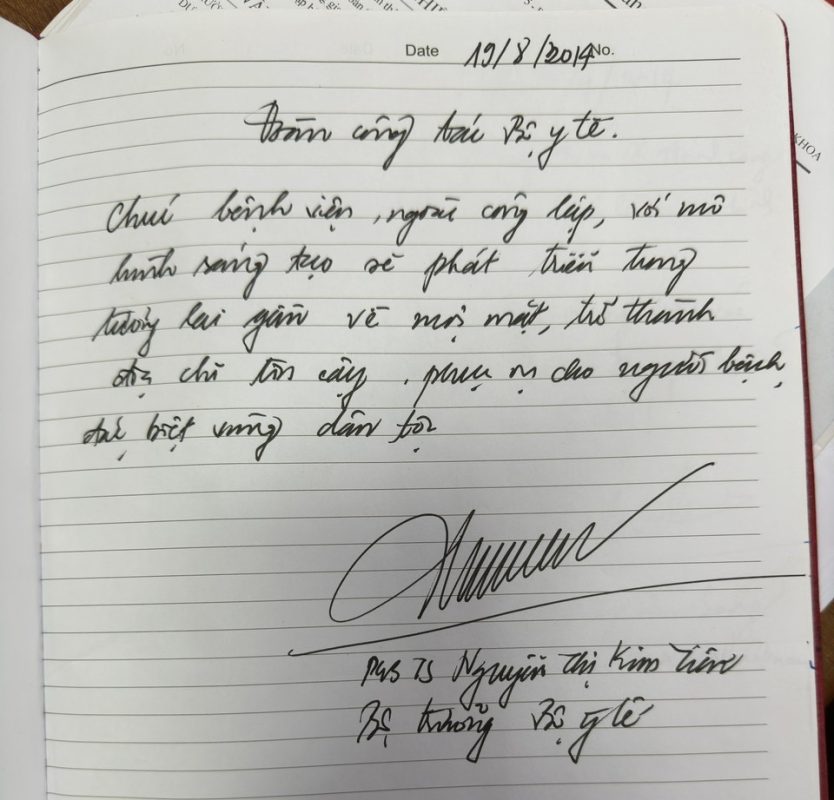 Date 19/8/2014 No.
Đoàn công tác Bộ y tế.
Chúc bệnh viện, ngoài công lập, với mô
hình sáng tạo sẽ phát triển trong
tương lai gần về mọi mặt, trở thành
địa chỉ tin cậy, phục vụ cho người bệnh,
đặc biệt vùng dân tộc
PGS TS Nguyễn Thị Kim Tiến
Bộ trưởng Bộ y tế
KHOA